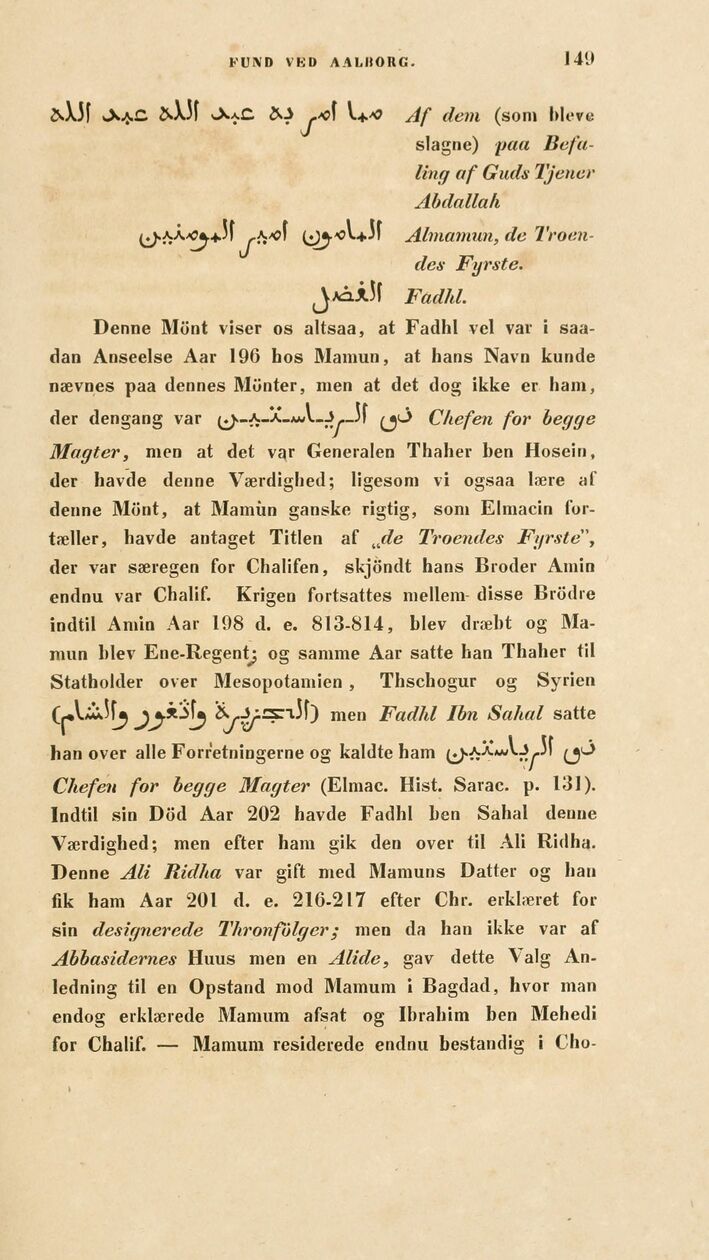 FUND VED AALBORG. 149
مما امر به عبد الله عبد الله Af dem (som bleve
slagne) paa Befa-
ling af Guds Tjener
Abdallah
المامون امير المومنين Almamun, de Troen-
des Fyrste.
الفضل Fadhl.
Denne Mönt viser os altsaa, at Fadhl vel var i saa-
dan Anseelse Aar 196 hos Mamun, at hans Navn kunde
nævnes paa dennes Mönter, men at det dog ikke er ham,
der dengang var ذو الرياستين Chefen for begge
Magter, men at det var Generalen Thaher ben Hosein,
der havde denne Værdighed; ligesom vi ogsaa lære af
denne Mönt, at Mamùn ganske rigtig, som Elmacin for-
tæller, havde antaget Titlen af „de Troendes Fyrste”,
der var særegen for Chalifen, skjöndt hans Broder Amin
endnu var Chalif. Krigen fortsattes mellem disse Brödre
indtil Amin Aar 198 d. e. 813-814, blev dræbt og Ma-
mun blev Ene-Regent; og samme Aar satte han Thaher til
Statholder over Mesopotamien, Thschogur og Syrien
(الجزيرة والثغور والشام) men Fadhl Ibn Sahal satte
han over alle Forretningerne og kaldte ham ذو الرياستين
Chefen for begge Magter (Elmac. Hist. Sarac. p. 131).
Indtil sin Död Aar 202 havde Fadhl ben Sahal denne
Værdighed; men efter ham gik den over til Ali Ridha.
Denne Ali Ridha var gift med Mamuns Datter og han
fik ham Aar 201 d. e. 216-217 efter Chr. erklæret for
sin designerede Thronfölger; men da han ikke var af
Abbasidernes Huus men en Alide, gav dette Valg An-
ledning til en Opstand mod Mamum i Bagdad, hvor man
endog erklærede Mamum afsat og Ibrahim ben Mehedi
for Chalif. — Mamum residerede endnu bestandig i Cho-